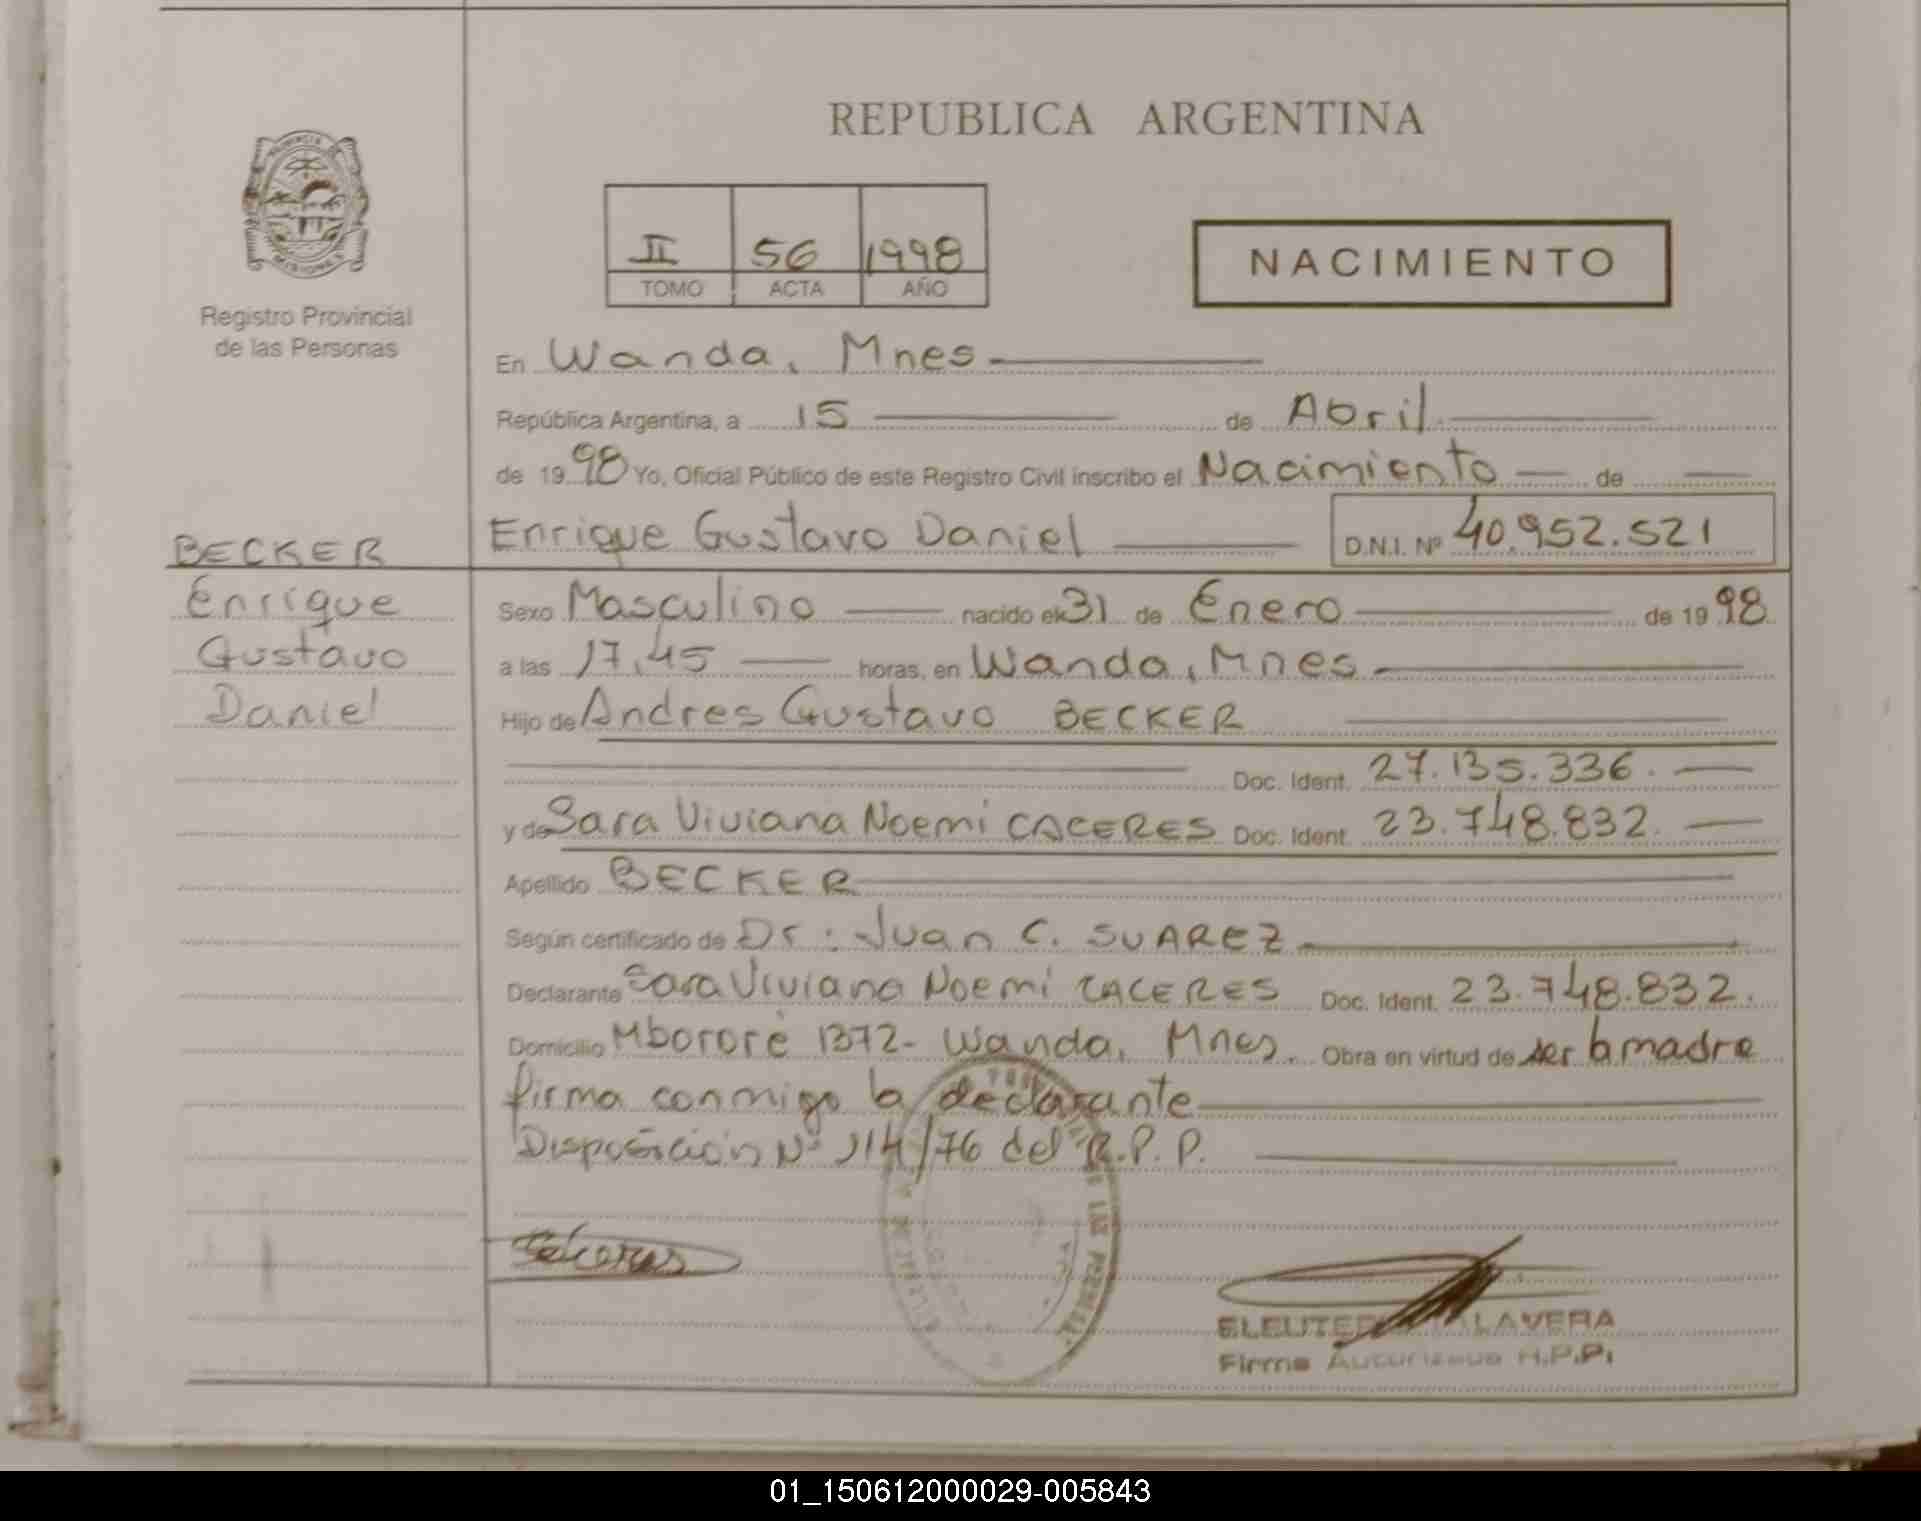 REPUBLICA ARGENTINA
PROVINCIA DE
MISIONES
Registro Provincial
de las Personas
II 56 1998
TOMO ACTA AÑO
NACIMIENTO
En Wanda, Mnes
República Argentina, a 15 de Abril
de 1998 Yo, Oficial Público de este Registro Civil inscribo el Nacimiento de
Enrique Gustavo Daniel D.N.I. Nº 40.952.521
BECKER
Enrique
Gustavo
Daniel
Sexo Masculino nacido el 31 de Enero de 1998
a las 17,45 horas, en Wanda, Mnes
Hijo de Andres Gustavo BECKER
Doc. Ident. 27.135.336.
y de Sara Viviana Noemi CACERES Doc. Ident. 23.748.832.
Apellido BECKER
Según certificado de Dr: Juan C. SUAREZ
Declarante Sara Viviana Noemi CACERES Doc. Ident. 23.748.832.
Domicilio Mbororé 1372- Wanda, Mnes. Obra en virtud de ser la madre
firma conmigo la declarante
Disposición Nº 114/76 del R.P.P.
DE LAS PERSONAS
Firma Autorizada R.P.P.
01_150612000029-005843